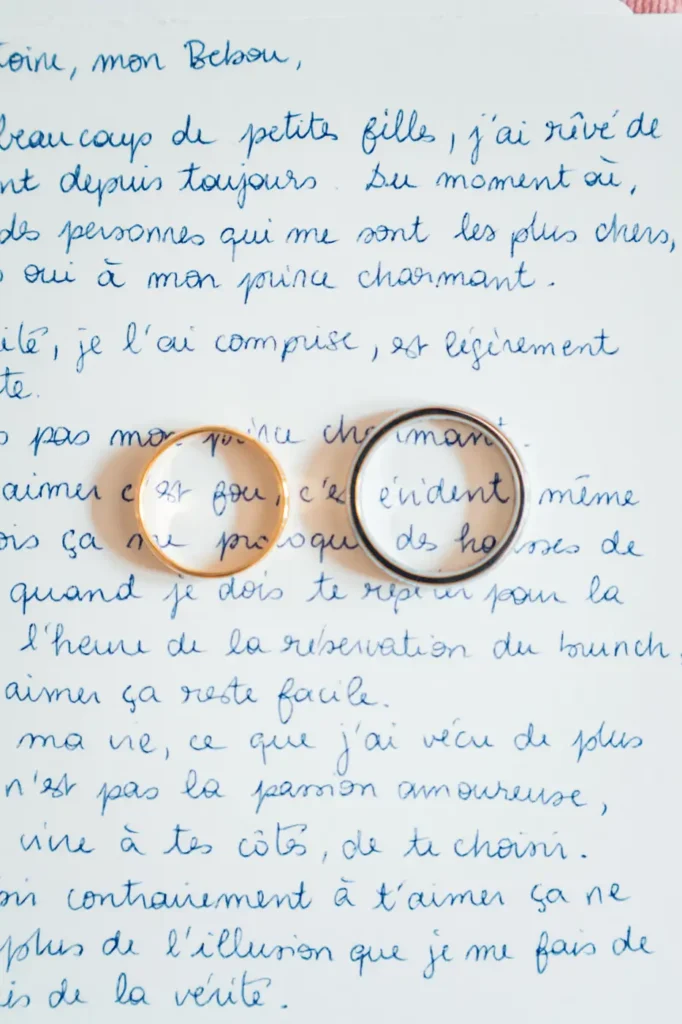 toine, mon Bebou,
beaucoup de petites filles, j'ai rêvé de
nt depuis toujours. Du moment où,
des personnes qui me sont les plus chers,
oui à mon prince charmant.
ité, je l'ai comprise, est légèrement
te.
pas mon prince charmant.
aimer c'est fou, c'est évident, même
ois ça me provoque des hausses de
quand je dois te répéter pour la
l'heure de la réservation du brunch,
aimer ça reste facile.
ma vie, ce que j'ai vécu de plus
n'est pas la passion amoureuse,
vivre à tes côtés, de te choisir.
sir contrairement à t'aimer ça ne
plus de l'illusion que je me fais de
is de la vérité.